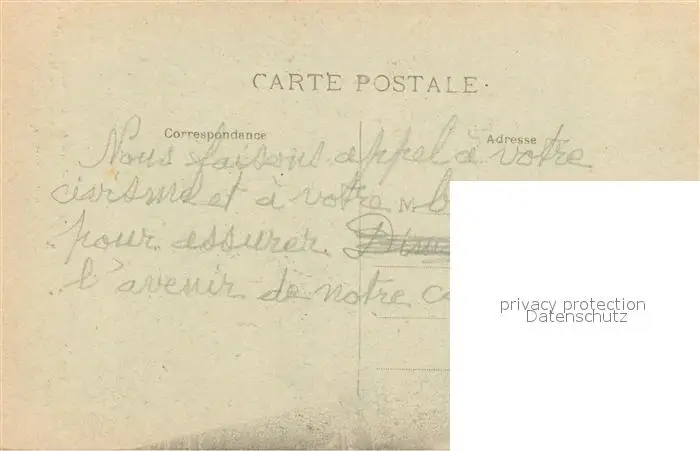 CARTE POSTALE
Correspondance Adresse
Nous faisons appel à votre
civisme et à votre M
pour assurer
l'avenir de notre
privacy protection
Datenschutz